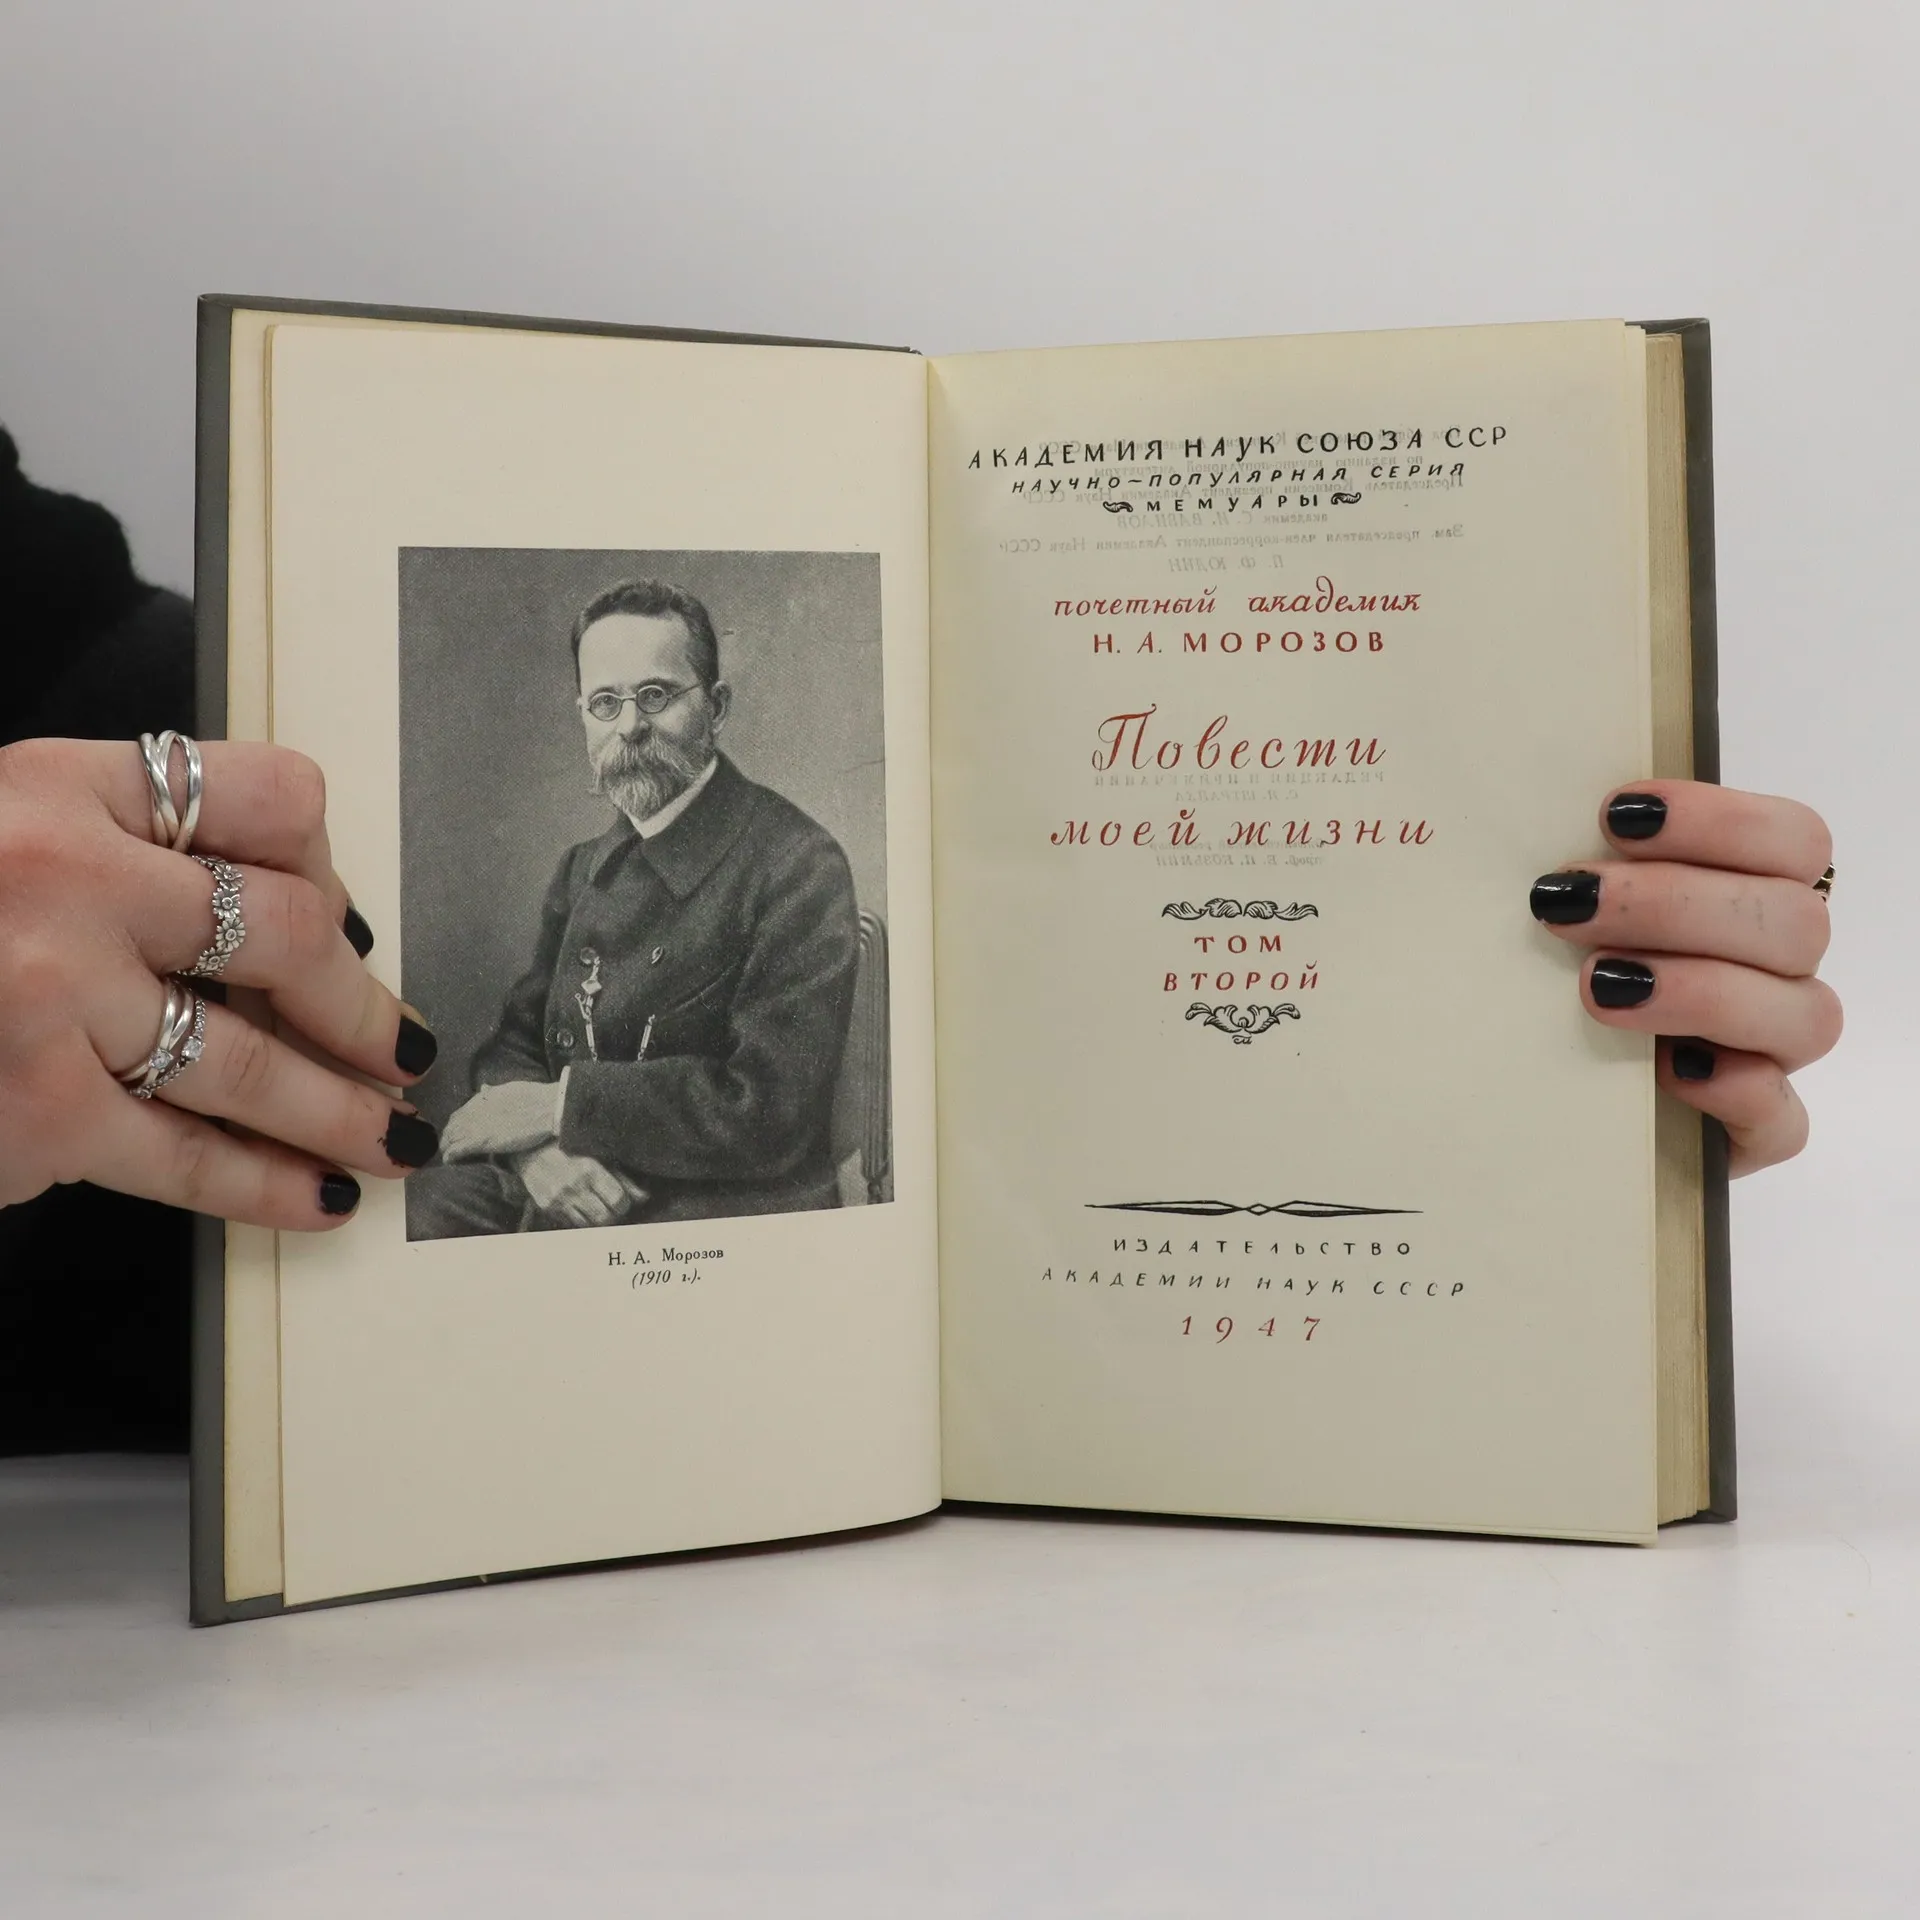 Н. А. Морозов
(1910 г.).
АКАДЕМИЯ НАУК СОЮЗА ССР
НАУЧНО-ПОПУЛЯРНАЯ СЕРИЯ
МЕМУАРЫ
почетный академик
Н. А. МОРОЗОВ
Повести
моей жизни
ТОМ
ВТОРОЙ
ИЗДАТЕЛЬСТВО
АКАДЕМИИ НАУК СССР
1947